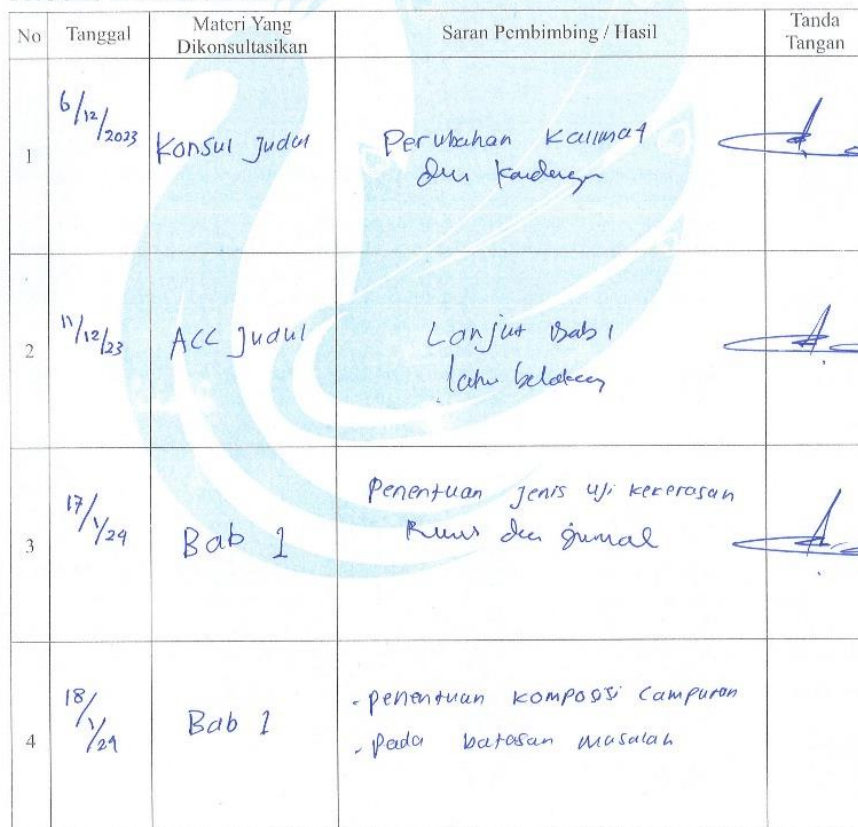 No
Tanggal
Materi Yang
Dikonsultasikan
Saran Pembimbing / Hasil
Tanda
Tangan
1
6/12/2023
Konsul Judul
Perubahan Kalimat
dan
2
11/12/23
ACC Judul
Lanjut Bab 1
latar belakang
3
17/1/24
Bab 1
Penentuan jenis uji kekerasan
dan jurnal
4
18/1/24
Bab 1
- penentuan komposisi campuran
- pada batasan masalah